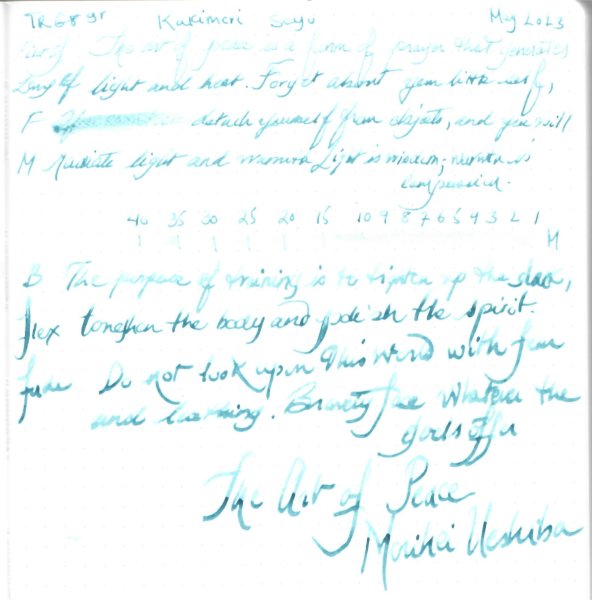 TR68gr Kakimori Sayo May 2023
The art of peace is a form of prayer that generates
light and heat. Forget about your little self,
F detach yourself from objects, and you will
M radiate light and warmth. Light is wisdom; warmth is
compassion.
40 35 30 25 20 15 10 9 8 7 6 5 4 3 2 1
M
B The purpose of training is to tighten up the slack,
flex toughen the body and polish the spirit.
Do not look upon this world with fear
and loathing. Bravely face whatever the
gods offer
The Art of Peace
Morihei Ueshiba